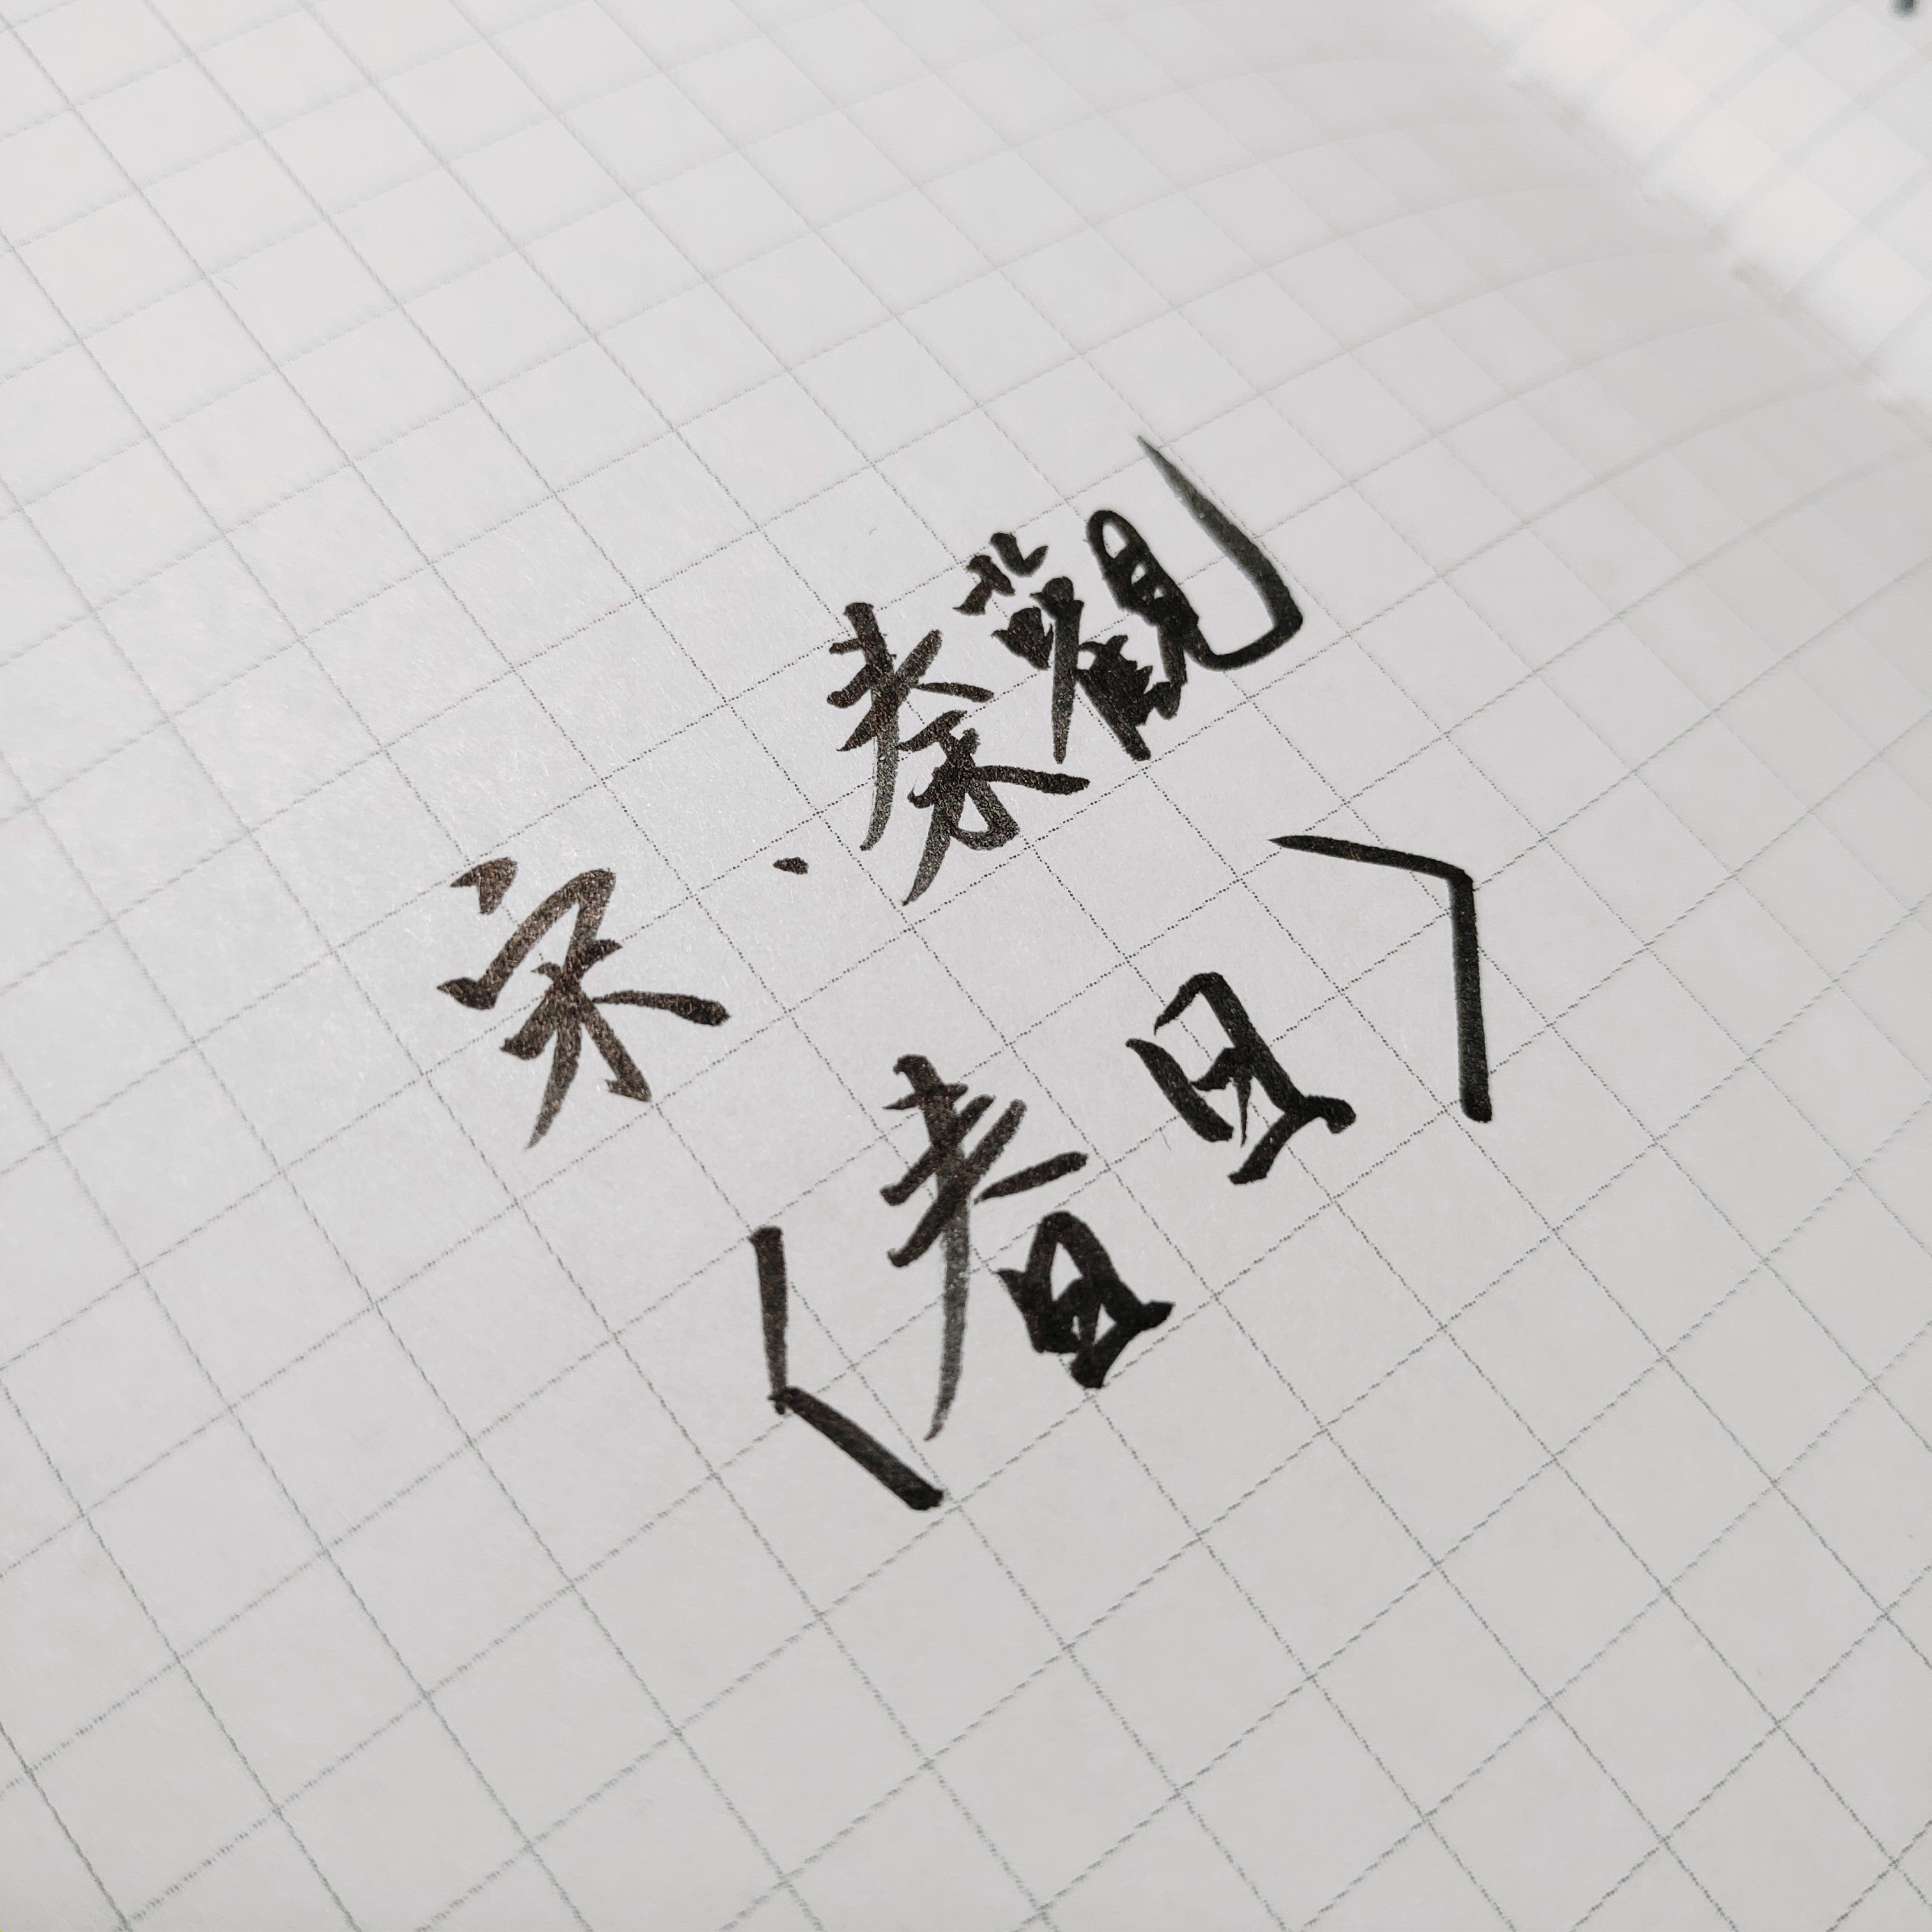 宋·秦觀
〈春日〉